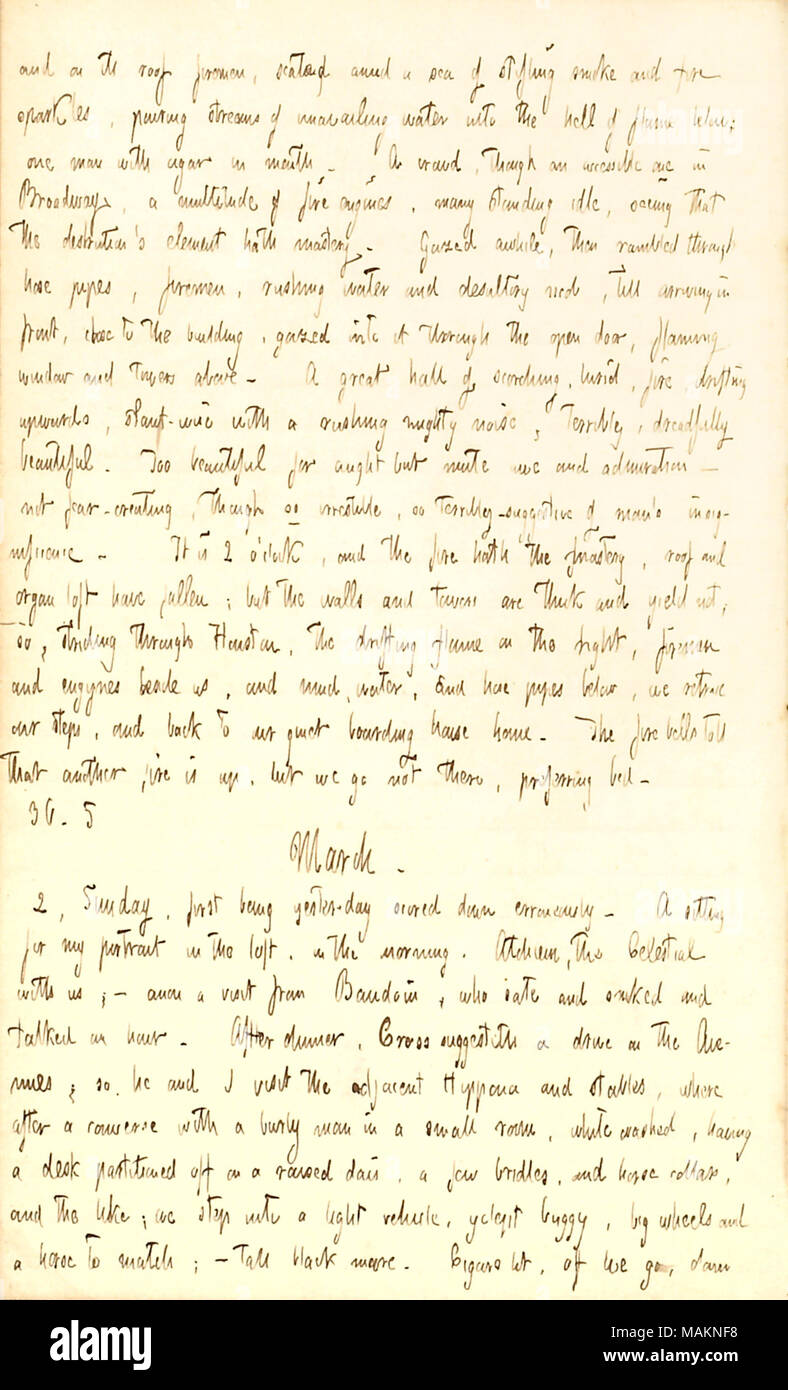 and on the roof firemen, seated amid a sea of stifling smoke and fire
sparkles, pouring streams of unavailing water into the hell of flame below;
one man with cigar in mouth. A crowd, though an accessible one in
Broadway, a multitude of fire engines, many standing idle, seeing that
the destruction's element hath mastery. Gazed awhile, then rambled through
hose pipes, firemen, rushing water and desultory mob, till arriving in
front, close to the building, gazed into it through the open door, flaming
window and towers above. A great hall of scorching, lurid, fire, drifting
upwards, slant-wise with a rushing mighty noise, Terribly, dreadfully
beautiful. Too beautiful for aught but mute awe and admiration —
not fear-creating, though so irrestible, so terribly-suggestive of man's insig-
nificence. It is 2 o'clock, and the fire hath the mastery, roof and
organ loft have fallen; but the walls and towers are thick and yield not,
so, striding through Houston, the drifting flame on the right, firemen
and engynes beside us, and mud, water, and hose pipes below, we retrace
our steps, and back to our quiet boarding house home. The fire bells toll
that another fire is up, but we go not there, preferring bed.
30. 5
March.
2, Sunday, first being yester-day scored down erroneously. A sitting
for my portrait in the loft, in the morning. Atcheen, the Celestial
with us; — anon a visit from Baudoin, who sate and smoked and
talked an hour. After dinner, Cross suggesteth a drive on the Ave-
nues; so he and I visit the adjacent Hippona and stables, where
after a converse with a burly man in a small room, white washed, having
a desk partitioned off on a raised dais, a few bridles, and horse collars,
and the like; we step into a light vehicle, yclept buggy, big wheels and
a horse to match; — tall black mare. Cigars lit, off we go, down
alamy
Image ID: MAKNF8
www.alamy.com